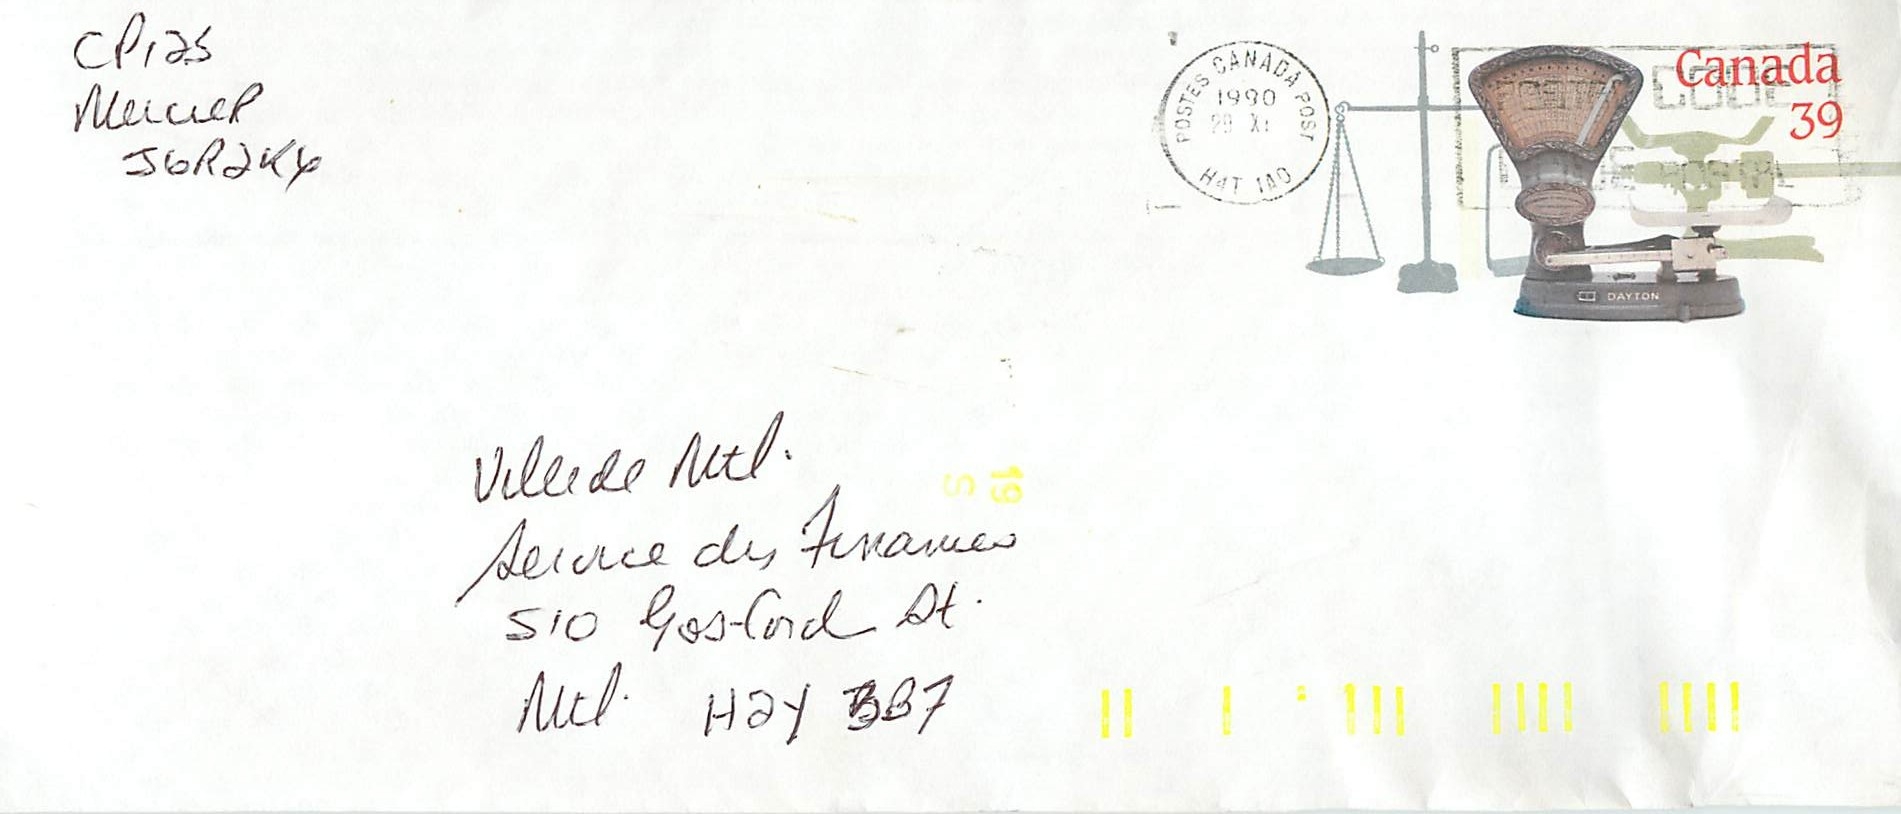 CP 125
Mercier
J6R 2K6
POSTES CANADA POST
1990
29 XI
H4T 1A0
POSTAL CODE
CODE POSTAL
Canada
39
DAYTON
Ville de Mtl.
Service des Finances
510 Gosford St.
Mtl. H2Y 3B7
19
S